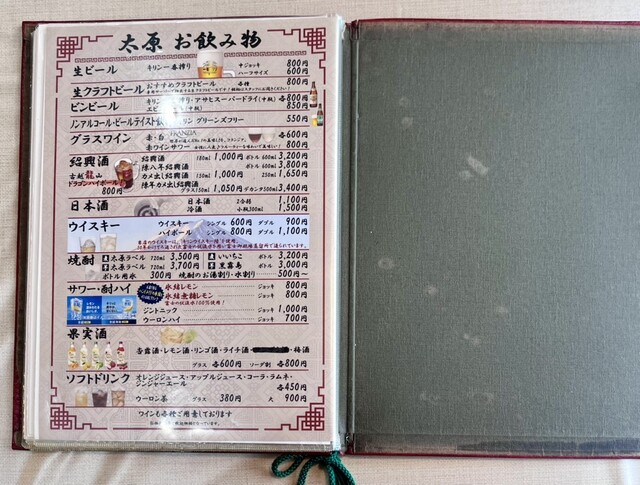 太原 お飲み物
生ビール キリン一番搾り 中ジョッキ 800円
ハーフサイズ 600円
生クラフトビール おすすめクラフトビール 各種 800円
ビンビール キリン一番搾り・アサヒスーパードライ(中瓶) 各800円
850円
ノンアルコール・ビールテイスト飲料 キリン グリーンズフリー 550円
グラスワイン 赤・白 各600円
赤ワインサワー 800円
紹興酒 紹興酒 180ml 1,000円 ボトル 600ml 3,200円
古越龍山 陳八年紹興酒 ボトル 600ml 3,800円
ドラゴンハイボール 800円 カメ出し紹興酒 150ml 1,000円 250ml 1,650円
陳年カメ出し紹興酒 グラス150ml 1,050円 デカンタ500ml 3,400円
日本酒 日本酒 2合徳 1,100円
冷酒 小瓶300ml 1,500円
ウイスキー ウイスキー シングル 600円 ダブル 900円
ハイボール シングル 800円 ダブル 1,100円
焼酎 麦 太原ラベル 720ml 3,500円 いいちこ ボトル 3,200円
太原ラベル 720ml 3,700円 黒霧島 ボトル 3,000円
ボトル用水 300円 焼酎のお湯割り・水割り 500円〜
サワー・酎ハイ 氷結レモン ジョッキ 800円
氷結無糖レモン ジョッキ 800円
富士の伏流水100%使用!
ジントニック ジョッキ 1,000円
ウーロンハイ ジョッキ 700円
果実酒
杏露酒・レモン酒・リンゴ酒・ライチ酒・ ・梅酒
グラス 各600円 ソーダ割 各800円
ソフトドリンク オレンジジュース・アップルジュース・コーラ・ラムネ・
ジンジャーエール 各450円
ウーロン茶 グラス 380円 大 900円
ワインも各種ご用意しております